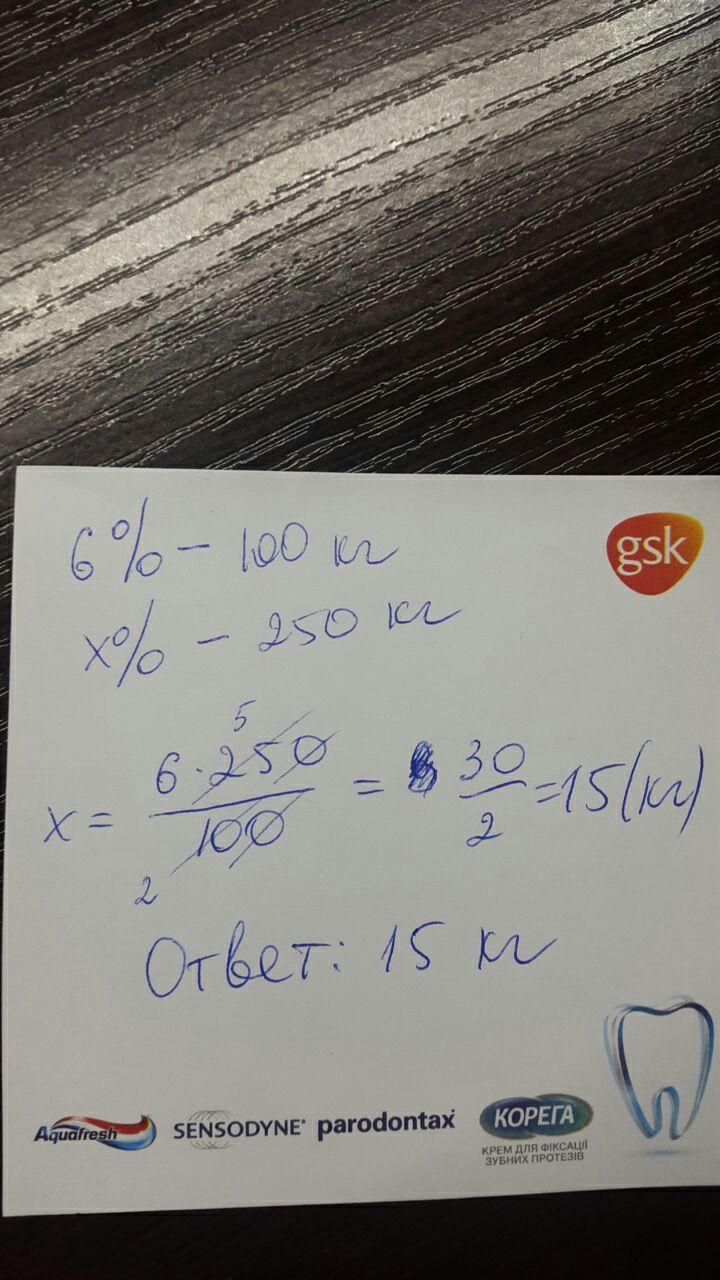 6% – 100 кг
gsk
x% – 250 кг
x = 6 · 250 / 100 = 30 / 2 = 15 (кг)
5
2
Ответ: 15 кг
Aquafresh SENSODYNE® parodontax КОРЕГА
КРЕМ ДЛЯ ФІКСАЦІЇ
ЗУБНИХ ПРОТЕЗІВ